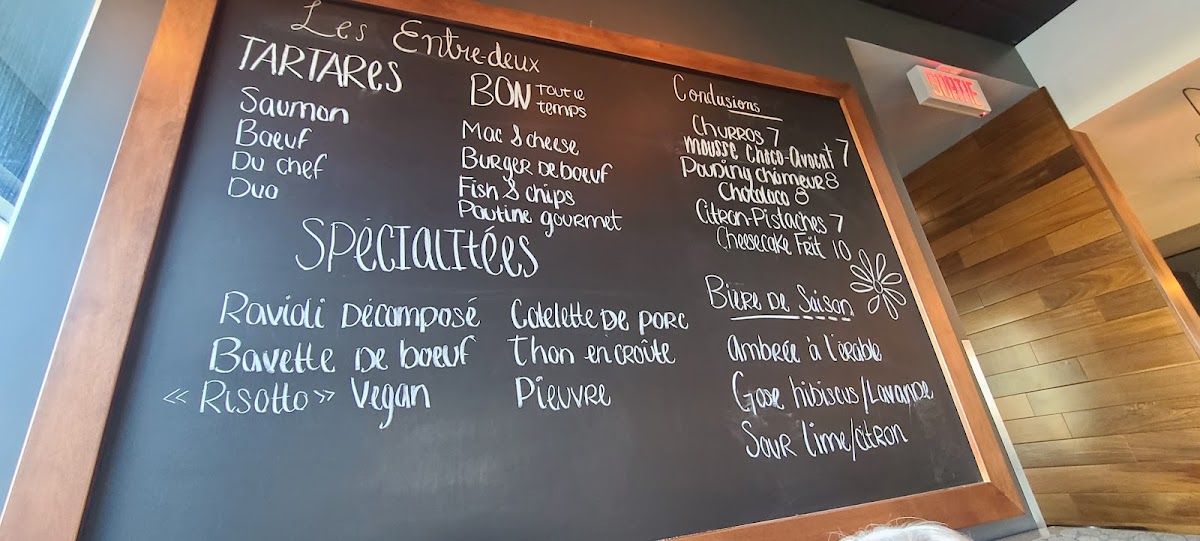 Les Entre-deux
TARTARES
Saumon
Boeuf
Du chef
Duo
BON TOUT LE
temps
Mac & cheese
Burger de boeuf
Fish & chips
Poutine gourmet
SPÉCIALITÉES
Ravioli Décomposé
Bavette De boeuf
«Risotto» Vegan
Cotelette DE porc
Thon en croûte
Pieuvre
Conclusions
Churros 7
mousse Choco-Avocat 7
Pouding chômeur 8
Chocolaco 8
Citron-Pistaches 7
Cheesecake Frit 10
Bière De Saison
Ambrée à l'érable
Gose hibiscus/Lavande
Sour lime/citron